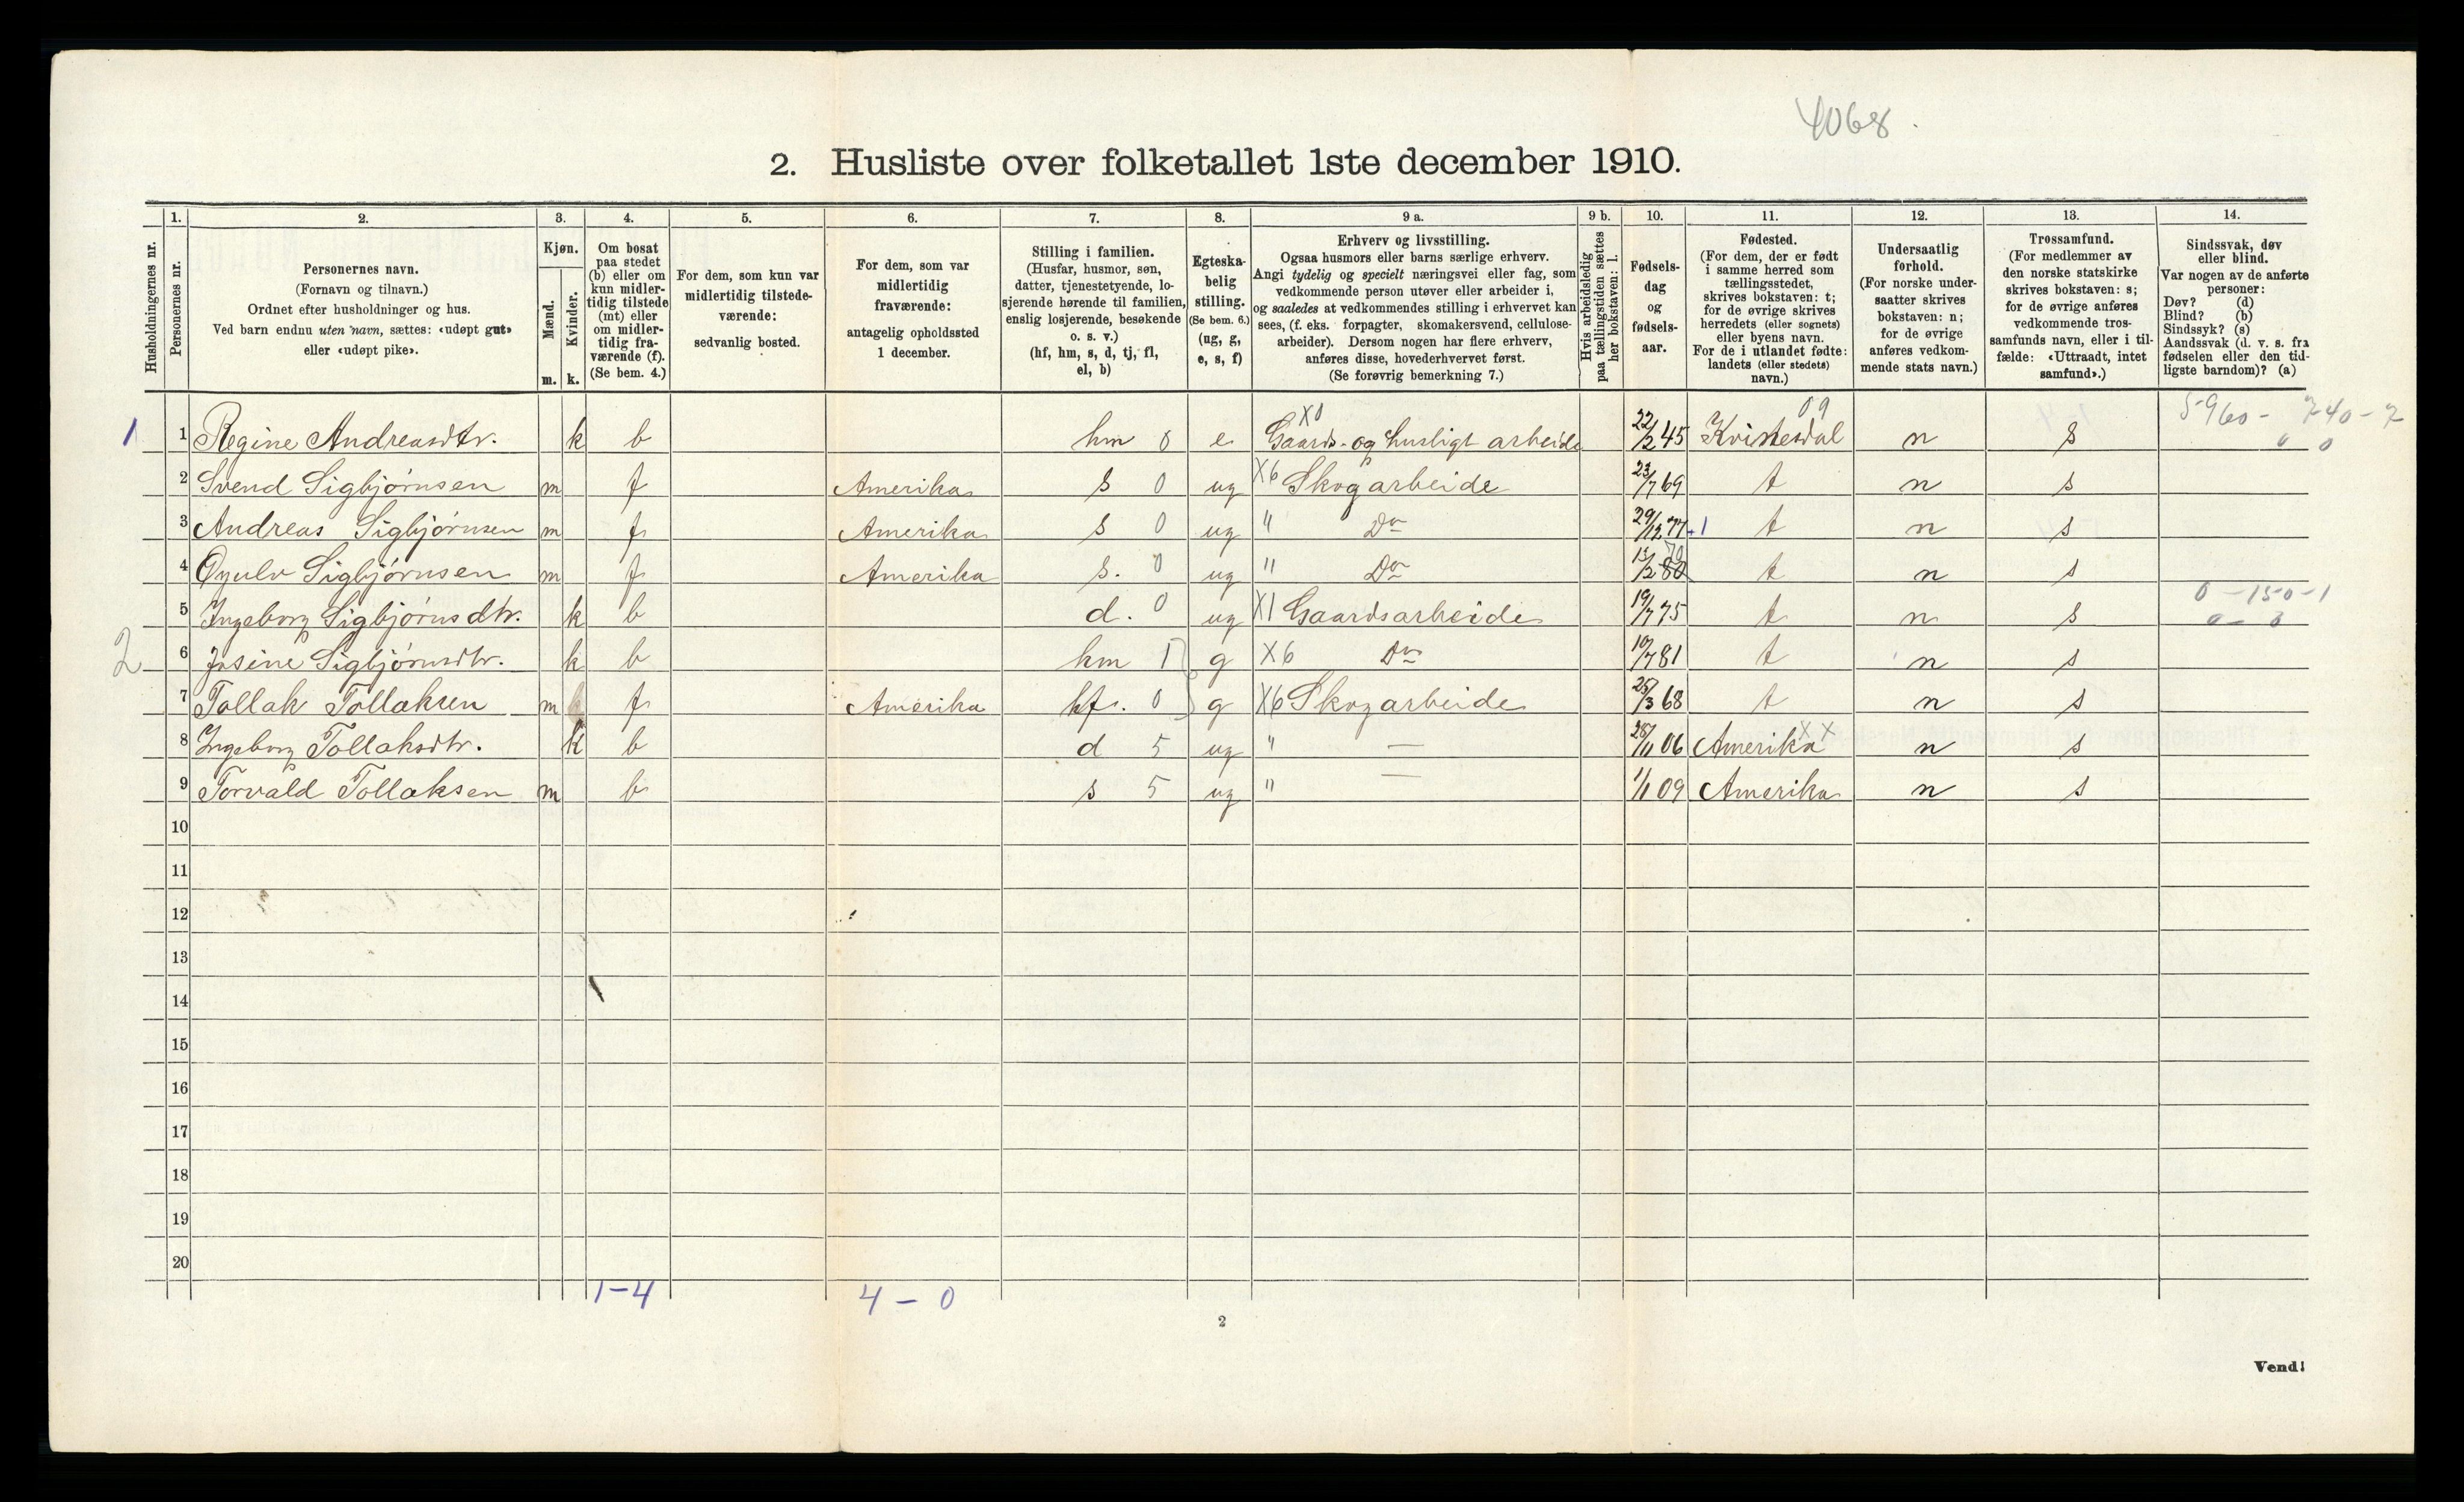 4068.
2. Husliste over folketallet 1ste december 1910.
Husholdningernes nr.
1.
Personernes nr.
2.
Personernes navn.
(Fornavn og tilnavn.)
Ordnet efter husholdninger og hus.
Ved barn endnu uten navn, sættes: «udøpt gut»
eller «udøpt pike».
3.
Kjøn.
Mænd.
m.
Kvinder.
k.
4.
Om bosat
paa stedet
(b) eller om
kun midler-
tidig tilstede
(mt) eller
om midler-
tidig fra-
værende (f).
(Se bem. 4.)
5.
For dem, som kun var
midlertidig tilstede-
værende:
sedvanlig bosted.
6.
For dem, som var
midlertidig
fraværende:
antagelig opholdssted
1 december.
7.
Stilling i familien.
(Husfar, husmor, søn,
datter, tjenestetyende, lo-
sjerende hørende til familien,
enslig losjerende, besøkende
o. s. v.)
(hf, hm, s, d, tj, fl,
el, b)
8.
Egteska-
belig
stilling.
(Se bem. 6.)
(ug, g,
e, s, f)
9 a.
Erhverv og livsstilling.
Ogsaa husmors eller barns særlige erhverv.
Angi tydelig og specielt næringsvei eller fag, som
vedkommende person utøver eller arbeider i,
og saaledes at vedkommendes stilling i erhvervet kan
sees, (f. eks. forpagter, skomakersvend, cellulose-
arbeider). Dersom nogen har flere erhverv,
anføres disse, hovederhvervet først.
(Se forøvrig bemerkning 7.)
9 b.
Hvis arbeidsledig
paa tællingstiden sættes
her bokstaven: l.
10.
Fødsels-
dag
og
fødsels-
aar.
11.
Fødested.
(For dem, der er født
i samme herred som
tællingsstedet,
skrives bokstaven: t;
for de øvrige skrives
herredets (eller sognets)
eller byens navn.
For de i utlandet fødte:
landets (eller stedets)
navn.)
12.
Undersaatlig
forhold.
(For norske under-
saatter skrives
bokstaven: n;
for de øvrige
anføres vedkom-
mende stats navn.)
13.
Trossamfund.
(For medlemmer av
den norske statskirke
skrives bokstaven: s;
for de øvrige anføres
vedkommende tros-
samfunds navn, eller i til-
fælde: «Uttraadt, intet
samfund».)
14.
Sindssvak, døv
eller blind.
Var nogen av de anførte
personer:
Døv? (d)
Blind? (b)
Sindssyk? (s)
Aandssvak (d. v. s. fra
fødselen eller den tid-
ligste barndom)? (a)
X0 09 5-960- 740-2
1 1 Regine Andreasdtr. k b hm 0 e Gaards- og husligt arbeide 22/2 45 Kvinesdal n s 0 0
2 Svend Sigbjørnsen m f Amerika s 0 ug X6 Skogarbeide 23/7 69 t n s
3 Andreas Sigbjørnsen m f Amerika s 0 ug " Do 29/12 77 +1 t n s
4 Sigbjørnsen m f Amerika s. 0 ug " Do t n s
5 Ingeborg Sigbjørnsdtr. k b d. 0 ug X1 Gaardsarbeide 19/7 75 t n s 0-150-1
2 6 Josine Sigbjørnsdtr. k b hm 1 g X6 Do 10/7 81 t n s
7 Tollak Tollaksen m f Amerika hf. 0 g X6 Skogarbeide 25/3 68 t n s
8 Ingeborg Tollaksdtr. k b d 5 ug " — 28/11 06 Amerika XX n s
9 Torvald Tollaksen m b s 5 ug " — 1/1 09 Amerika n s
10
11
12
13
14
15
16
17
18
19
20
1-4 4-0
2
Vend!